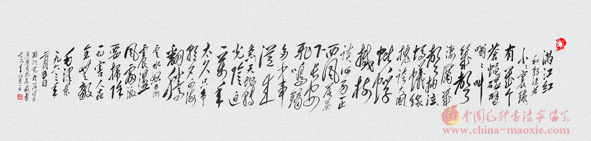 满江红
和郭沫若
小小寰球
有几个
苍蝇碰壁
嗡嗡叫
几声
凄厉几声
抽泣
蚂蚁缘
槐夸大国
蚍蜉
撼树
谈何易正
西风落叶
下长安
飞鸣镝
多少事
从来
急天地转
光阴迫
一万年
太久只争
朝夕四海
翻腾
云水怒五洲
震荡
风雷激
要扫除
一切害人虫
全无敌
毛泽东
一九六三
中国毛体书法家协会
www.china-maoxie.com